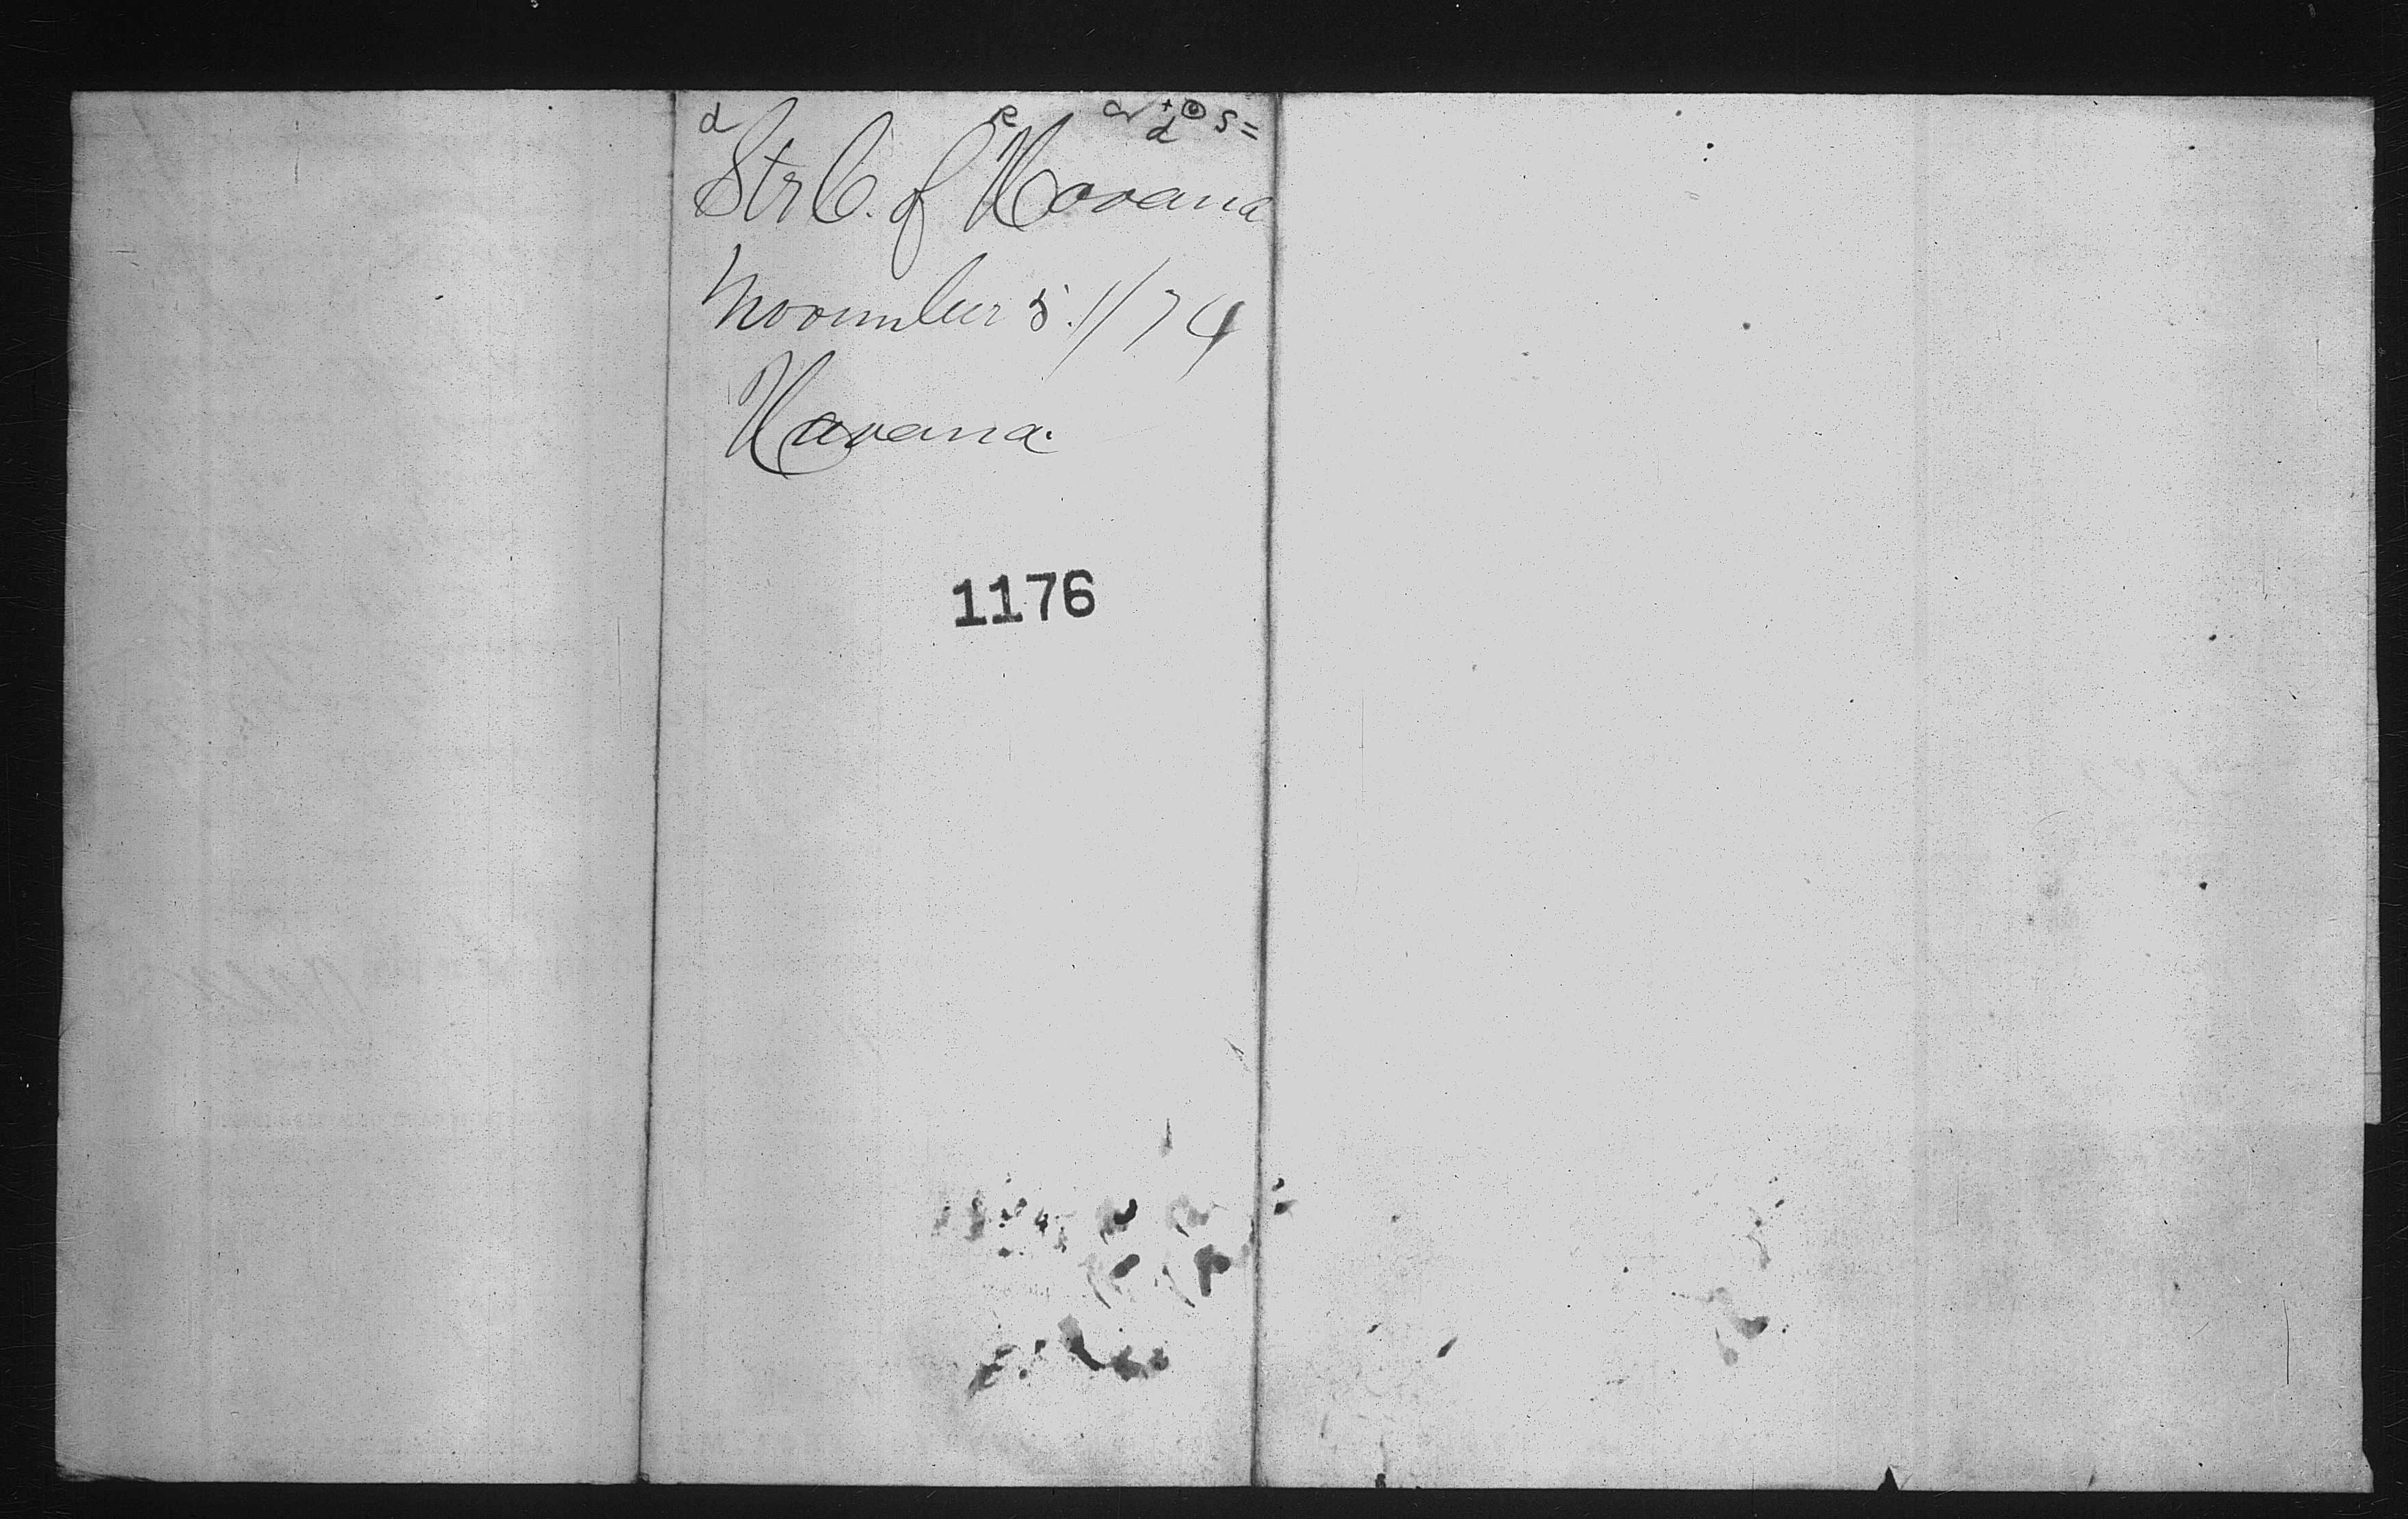 Str C. of Havana
November 5.1/74
Havana.
1176